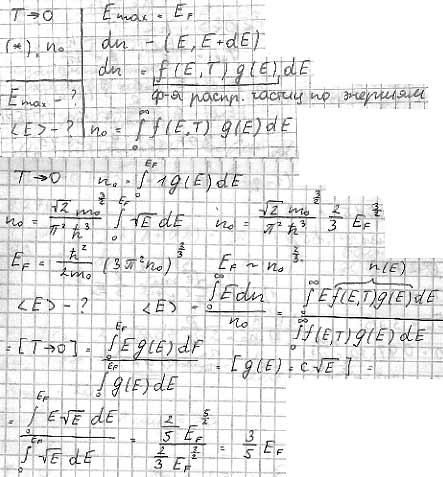 T→0 | E_max = E_F
(*), n₀ | dn - (E, E+dE)
dn = f(E,T) g(E) dE
E_max - ? | ф-я распр. частиц по энергиям
<E> - ? | n₀ = ∫₀^∞ f(E,T) g(E) dE
T→0 n₀ = ∫₀^{E_F} 1 g(E) dE
n₀ = (√2 m₀^{3/2})/(π² ħ³) ∫₀^{E_F} √E dE n₀ = (√2 m₀^{3/2})/(π² ħ³) 2/3 E_F^{3/2}
E_F = ħ²/(2m₀) (3π² n₀)^{2/3} E_F ~ n₀^{2/3}
<E> - ? <E> = (∫₀^∞ E dn)/n₀ = (∫₀^∞ E f(E,T) g(E) dE)/(∫₀^∞ f(E,T) g(E) dE) n(E)
= [T→0] = (∫₀^{E_F} E g(E) dE)/(∫₀^{E_F} g(E) dE) = [g(E) = c√E] =
= (∫₀^{E_F} E √E dE)/(∫₀^{E_F} √E dE) = (2/5 E_F^{5/2})/(2/3 E_F^{3/2}) = 3/5 E_F